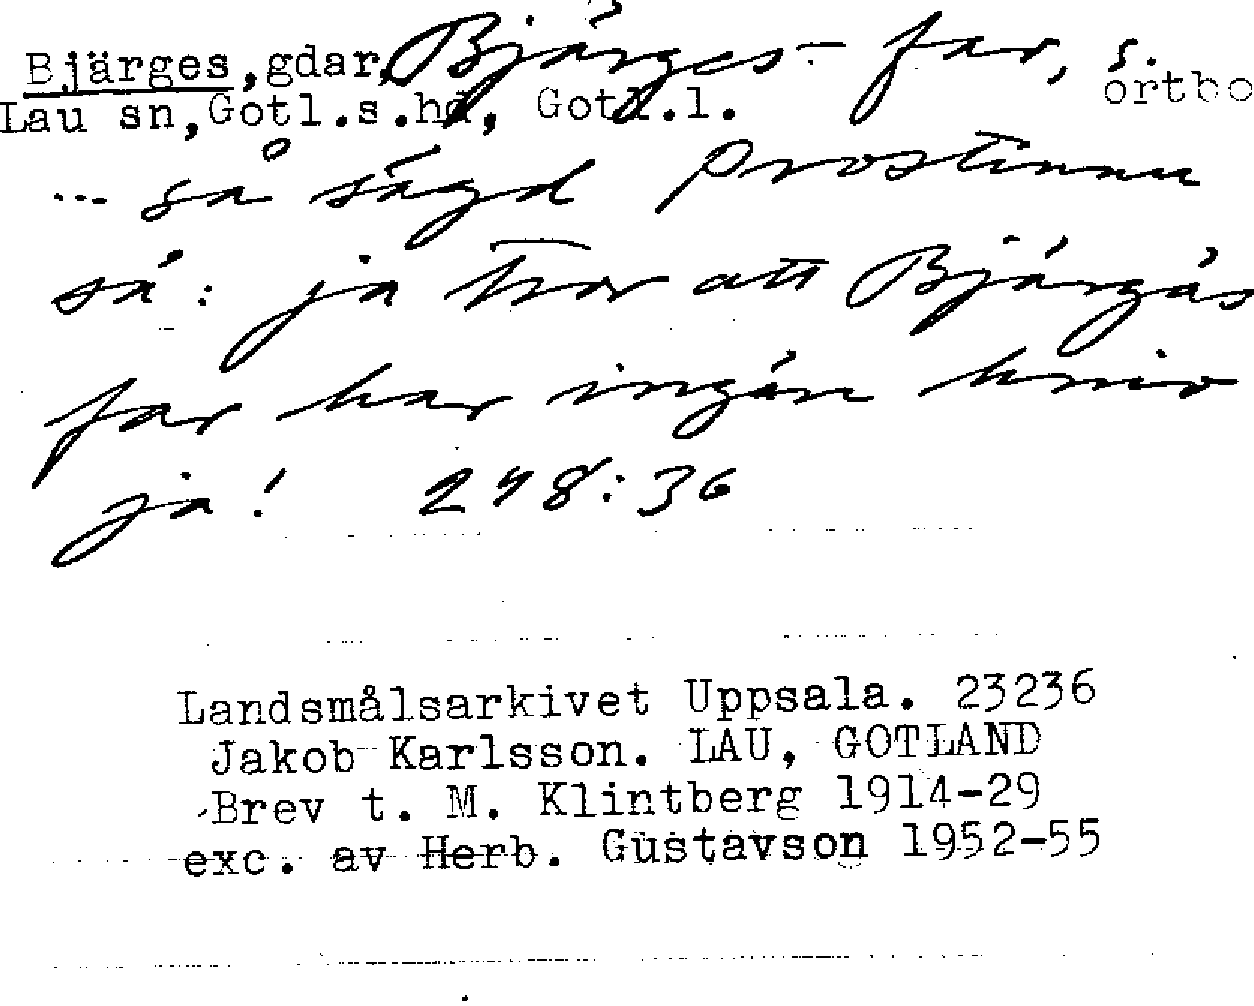 Bjärges, gdar, Bjärges-far, s.
Lau sn, Gotl.s.hd, Gotl.l. ortbo
... så sägd Prostinnu
sá: ja tror att Bjärgás
far har ingán kniv
ja! 248:36
Landsmålsarkivet Uppsala. 23236
Jakob Karlsson. LAU, GOTLAND
Brev t. M. Klintberg 1914-29
exc. av Herb. Gustavson 1952-55